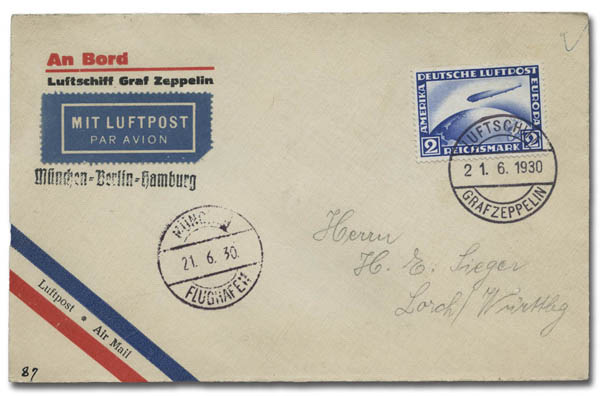 An Bord
Luftschiff Graf Zeppelin
MIT LUFTPOST
PAR AVION
München-Berlin-Hamburg
DEUTSCHE LUFTPOST
AMERIKA
EUROPA
2 REICHSMARK 2
LUFTSCHI
21.6.1930
GRAF ZEPPELIN
MÜNCHEN
21.6.30.
FLUGHAFEN
Herrn
H. E. Sieger
Lorch/Württbg
Luftpost • Air Mail
87